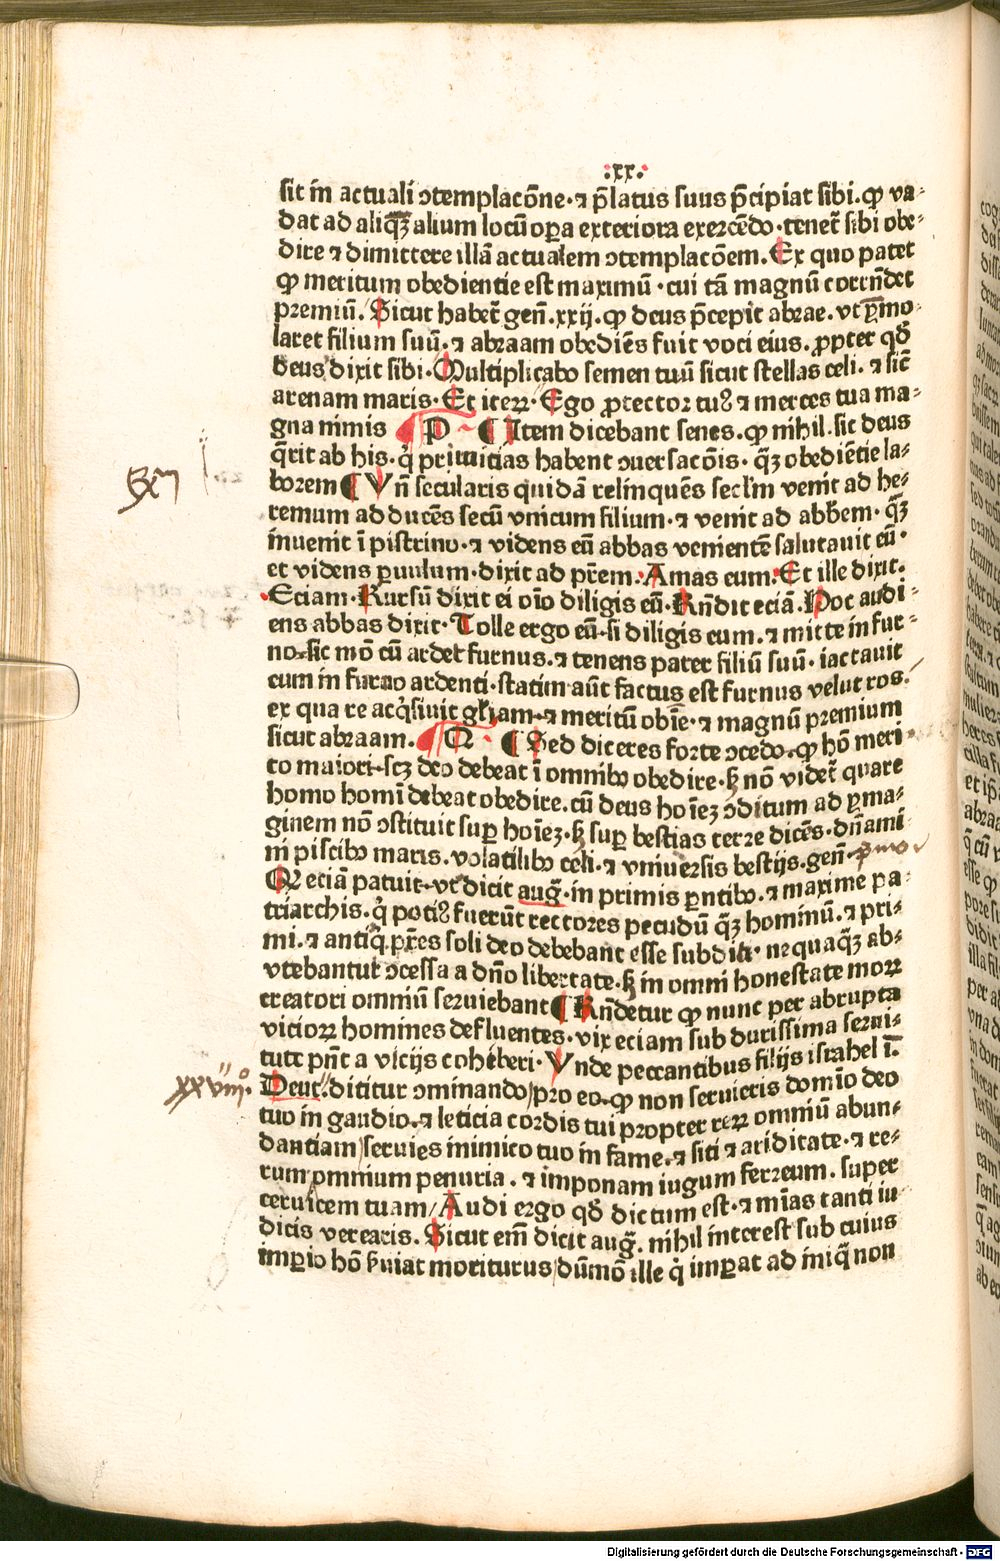 ·xx·
sit in actuali ɔtemplacõne·⁊ p̃latus suus p̃cipiat sibi.ꝙ va⸗
dat ad aliqȝ̃ alium locũ oꝑa exteriora exercẽdo·tenet̃ sibi obe⸗
dire ⁊ dimittere illã actualem ɔtemplacõem.Ex quo patet
ꝙ meritum obedientie est maximũ·cui tã magnũ correñdet
premiũ.Sicut habet̃ geñ.xxij.ꝙ deus p̃cepit abrae.vt ꝑmo⸗
laret filium suũ.⁊ abraam obediẽs fuit voci eius. ꝓpter qđ
deus dixit sibi·Multiplicabo semen tuũ sicut stellas celi.⁊ sic̃
arenam maris·Et iteꝝ·Ego ꝓtector tuꝰ ⁊ merces tua ma⸗
gna nimis P ¶ Item dicebant senes.ꝙ nihil.sic deus
q̃rit ab his.q̇ primicias habent ɔuersacõis·qȝ̃ obediẽtie la⸗
borem ¶ Vñ secularis quidã relinquẽs sec̃lm venit ad he⸗
remum adducẽs secũ vnicum filium·⁊ venit ad abbẽm·qȝ̃
inuenit ĩ pistrino·⁊ videns eũ abbas venientẽ salutauit eũ·
et videns ꝑuulum·dixit ad pr̃em·Amas eum·Et ille dixit.
Eciam·Rursũ dixit ei oĩo diligis eũ·Rñdit eciã.Hoc audi⸗
ens abbas dixit·Tolle ergo eũ·si diligis eum.⁊ mitte in fur⸗
no·sic mõ cũ ardet furnus.⁊ tenens pater filiũ suũ·iactauit
eum in furno ardenti·statim aũt factus est furnus velut ros.
ex qua re acq̇siuit gl̃iam·⁊ meritũ obĩe·⁊ magnũ premium
sicut abraam. Q ¶ Sed diceres forte ɔcedo.ꝙ hõ meri⸗
to maiori·scȝ deo debeat ĩ omnibꝰ obedire·ẞ nõ videt̃ quare
homo homĩ debeat obedire.cũ deus hoĩeȝ ɔditum ad ꝑma⸗
ginem nõ ɔstituit suꝑ hoĩeȝ·ẞ suꝑ bestias terre dicẽs·dñami
ni piscibꝰ maris.volatilibꝰ celi·⁊ vniuersis bestijs.geñ·pͥmo
Qr eciã patuit·vt dicit aug̃·in primis ꝑntibꝰ.⁊ maxime pa⸗
triarchis.q̇ potiꝰ fuerũt rectores pecudũ qȝ̃ hominũ.⁊ pri⸗
mi.⁊ antiq̇.pr̃es soli deo debebant esse subditi·nequaqȝ̃ ab⸗
vtebantur ɔcessa a dño libertate·ẞ in omni honestate moꝝ
creatori omniũ seruiebant ¶ Rñdetur ꝙ nunc per abrupta
vicioꝝ homines defluentes·vix eciam sub durissima serui⸗
tute pñt a vicijs cohiberi·Vnde peccantibus filijs israhel ĩ.
xxviijº. Deut̃. dititur ɔminando/pro eo.ꝙ non seruieris domĩo deo
tuo in gaudio.⁊ leticia cordis tui propter reꝝ omniũ abun⸗
dantiam/seruies inimico tuo in fame.⁊ siti ⁊ ariditate·⁊ re⸗
rum omnium penuria.⁊ imponam iugum ferreum.super
ceruicem tuam/Audi ergo qđ dictum est·⁊ mĩas tanti iu
dicis verearis.Sicut em̃ dicit aug̃. nihil interest sub cuius
imꝑio hõ ẞuiat moriturus/dũmõ ille q̇ imꝑat ad iniq̃ non
Digitalisierung gefördert durch die Deutsche Forschungsgemeinschaft - DFG